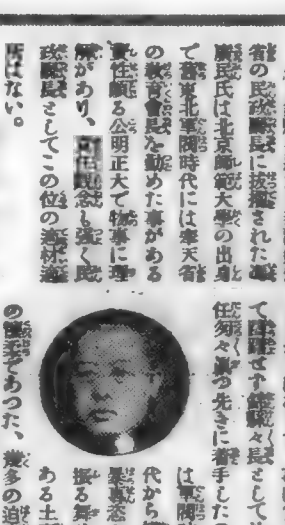 省の民政廳長に抜擢された馮
廣民氏は北京師範大學の出身
で舊東北軍閥時代には奉天省
の教育會長を勤めた事がある
資性頗る公明正大で物事に理
解があり、責任観念も強く民
政廳長としてこの位の適材適
所はない。
て躊躇せず 長として
任匆々眞つ先きに着手したの
は軍閥
代から
暴恣
振る舞
ある土
の懐柔であつた、幾多の迫